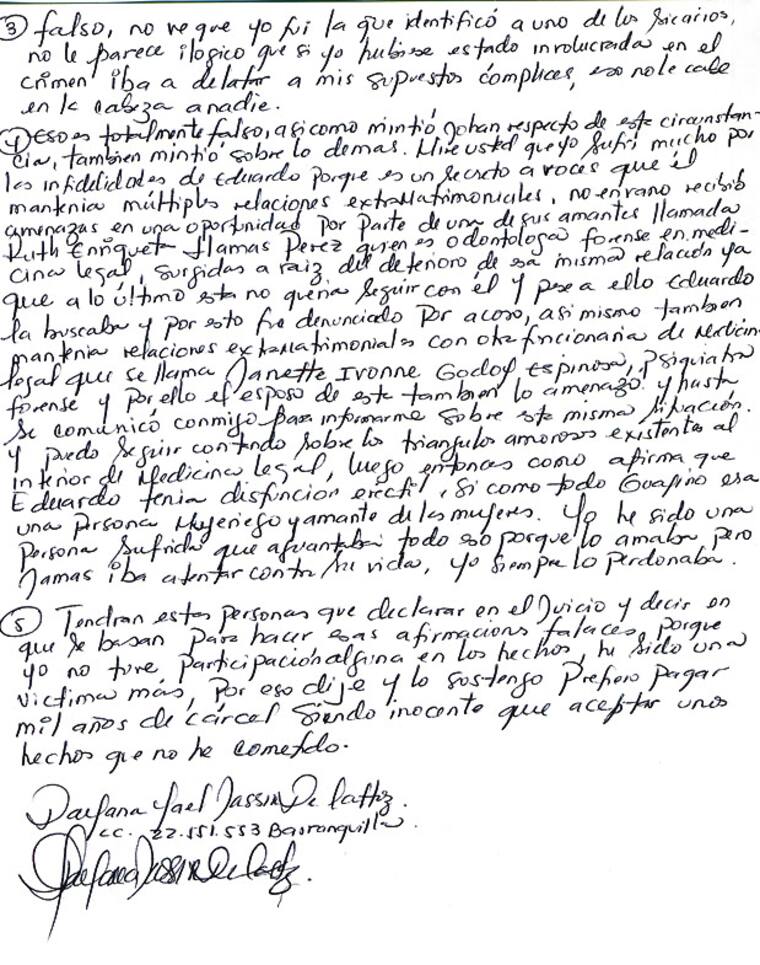 ③ falso, no ve que yo fui la que identificó a uno de los sicarios,
no le parece ilogico que si yo hubiese estado involucrada en el
crimen iba a delatar a mis supuestos complices, eso no le cabe
en la cabeza a nadie.
④ Eso es totalmente falso, asi como mintió Johan respecto de esta circunstan-
cia, tambien mintió sobre lo demas. Mire usted que yo sufrí mucho por
las infidelidades de Eduardo porque es un secreto a voces que él
mantenia múltiples relaciones extramatrimoniales, no en vano recibió
amenazas en una oportunidad por parte de una de sus amantes llamada
Ruth Enriqueta Llamas Perez quien es odontologa forense en medi-
cina legal, surgidas a raiz del deterioro de esa misma relación ya
que a lo último esta no queria seguir con él y pese a ello Eduardo
la buscaba y por esto fue denunciado por acoso, asi mismo tambien
mantenia relaciones extramatrimoniales con otra funcionaria de Medicina
legal que se llama Janette Ivonne Godoy Espinosa, Psiquiatra
forense y por ello el esposo de esta tambien lo amenazo y hasta
se comunicó conmigo para informarme sobre esta misma situación.
Y puedo seguir contando sobre los triangulos amorosos existentes al
interior de Medicina legal, luego entonces como afirma que
Eduardo tenia disfuncion erectil, si como todo Guapino era
una persona Mujeriego y amante de las mujeres. Yo he sido una
persona sufrida que aguantaba todo eso porque lo amaba, pero
Jamas iba atentar contra su vida, yo siempre lo perdonaba.
⑤ Tendran estas personas que declarar en el Juicio y decir en
que se basan para hacer esas afirmacions falaces, porque
yo no tuve participación alguna en los hechos, he sido una
victima más, Por eso dije y lo sostengo Prefiero pagar
mil años de cárcel siendo inocente que aceptar unos
hechos que no he cometido.
Dayana Yael Jassir De la Hoz.
CC. 22.551.553 Barranquilla.
Dayana Jassir De la Hoz.